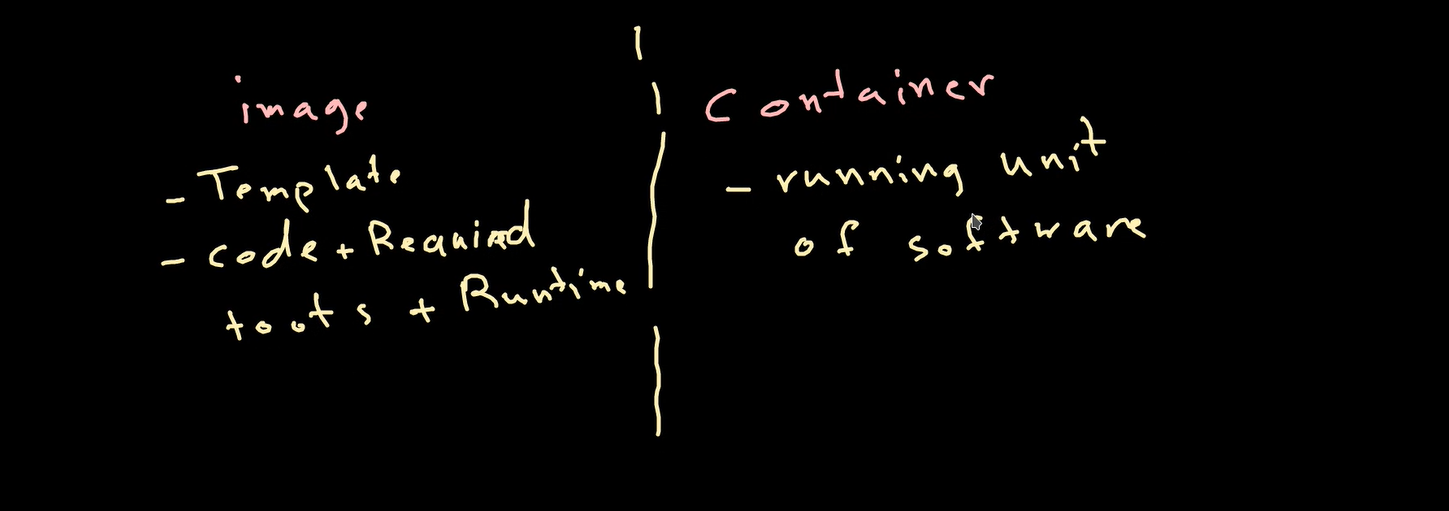 image
- Template
- code + Required
toots + Runtime
Container
- running unit
of software